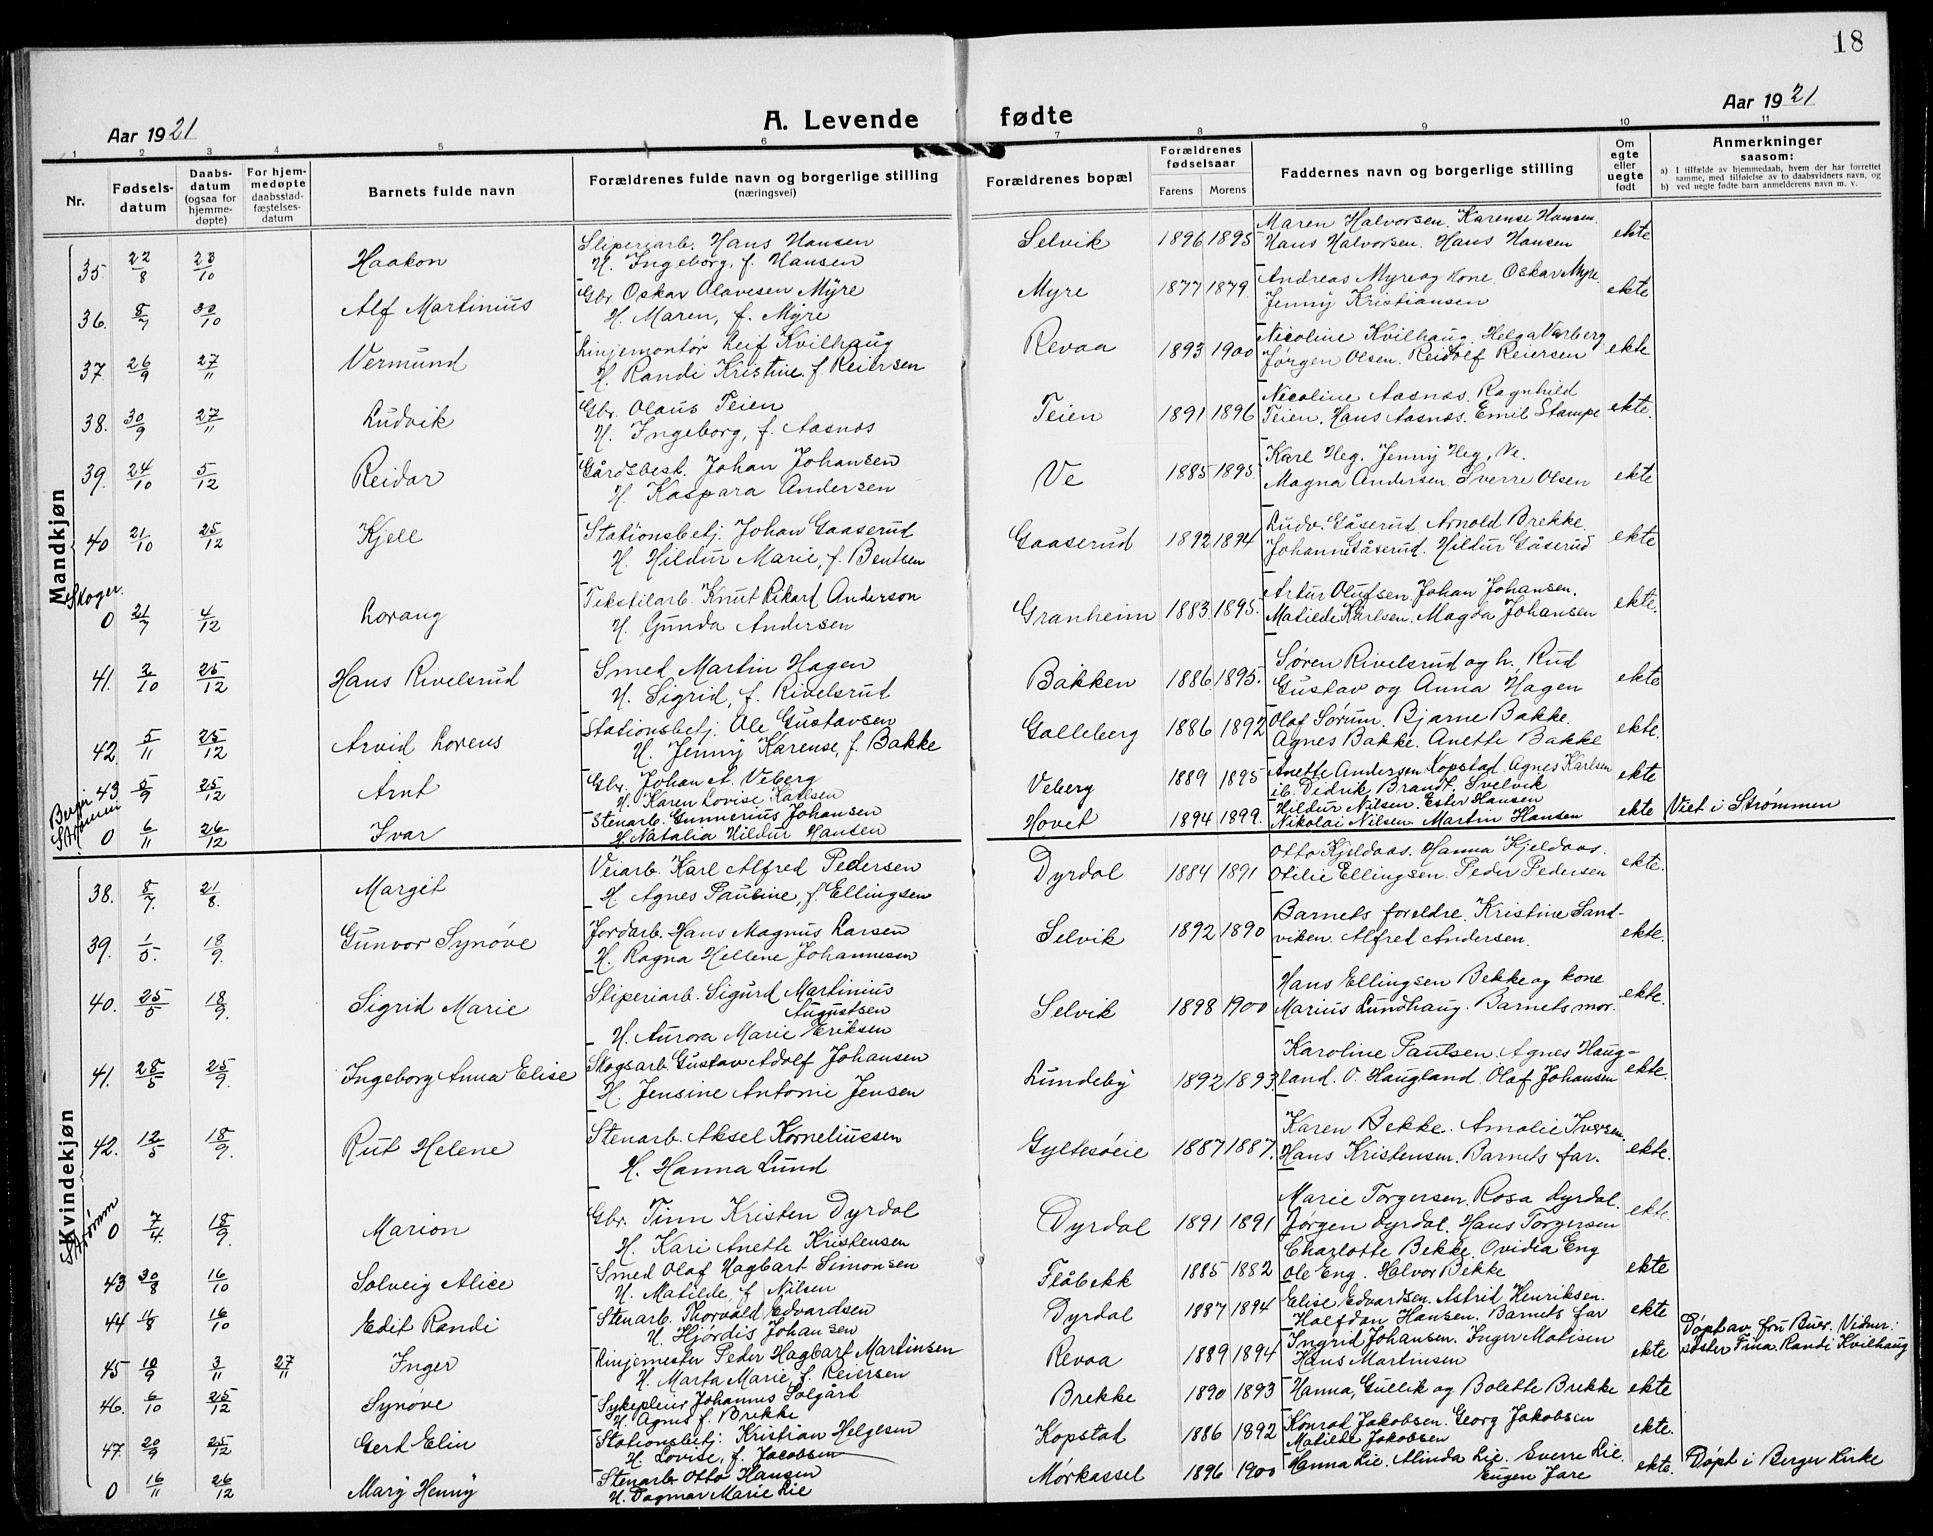 18
Aar 1921
A. Levende fødte
Aar 1921
1 2 3 4 5 6 7 8 9 10 11
Nr.
Fødsels-
datum
Daabs-
datum
(ogsaa for
hjemme-
døpte)
For hjem-
medøpte
daabsstad-
fæstelses-
datum
Barnets fulde navn
Forældrenes fulde navn og borgerlige stilling
(næringsvei)
Forældrenes bopæl
Forældrenes
fødselsaar
Farens Morens
Faddernes navn og borgerlige stilling
Om
egte
eller
uegte
født
Anmerkninger
saasom:
a) I tilfælde av hjemmedaab, hvem der har forrettet
samme, med tilføielse av to daabsvidners navn, og
b) ved uegte fødte barn anmelderens navn m. v.
Mandkjøn
35 22/8 23/10 Haakon Sliperiarb. Hans Hansen Selvik 1896 1895 Maren Halvorsen. Karense Hansen. ekte
H. Ingeborg, f. Hansen Hans Halvorsen. Hans Hansen
36. 8/7 30/10 Alf Martinius Gbr Oskar Olavesen Myre Myre 1877 1879. Andreas Myre og kone Oskar Myre. ekte
H. Maren, f. Myre Jenny Kristiansen
37. 26/9 27/11 Vermund Linjemontør Leif Kvilhaug Revaa 1893 1900 Nicoline Kvilhaug. Helga Varberg ekte
H. Randi Kristine f Reiersen Jørgen Olsen. Reidolf Reiersen
38. 30/9 27/11 Ludvik Gbr. Olaus Teien Teien 1891 1896 Nicoline Aasnæs. Ragnhild ekte.
H. Ingeborg, f. Aasnæs Teien. Hans Aasnæs. Emil Stampe
39. 24/10 5/12 Reidar Gårdsbest. Johan Johansen Ve 1885 1895. Karl Heg. Jenny Heg, Ve. ekte
H. Kaspara Andersen Magna Andersen. Sverre Olsen
40 21/10 25/12 Kjell Stationsbetj. Johan Gaaserud Gaaserud 1892 1894 Ludv. Gåserud Arnold Brekke. ekte
H. Hildur Marie, f. Bentsen Johanne Gåserud. Hildur Gåserud
Skoger.
0 21/7 4/12 Lorang Tekstilarb. Knut Rikard Anderson Granheim 1883. 1895. Artur Olufsen. Johan Johansen. ekte.
H. Gunda Andersen Matilde Karlsen. Magda Johansen
41. 2/10 25/12 Hans Rivelsrud Smed Martin Hagen Bakken 1886 1895. Søren Rivelsrud og h. Rud ekte
H. Sigrid, f. Rivelsrud Gustav og Anna Hagen
42. 5/11 25/12 Arvid Lorens Stationsbetj. Ole Gustavsen Galleberg 1886 1892 Olaf Sørum. Bjarne Bakke. ekte.
H. Jenny Karense, f. Bakke Agnes Bakke. Anette Bakke
43 5/9 25/12 Arnt Gbr. Johan A. Veberg Veberg 1889 1895 Anette Andersen Kopstad Agnes Karlsen ekte
H. Karen Lovise Karlsen ib. Didrik Brandt. Svelvik
Berger
Strømm
0 6/11 26/12 Ivar Stenarb. Gunnerius Johansen Hovet 1894 1899. Hildur Nilsen. Ester Hansen ekte Viet i Strømmen
H. Natalia Hildur Hansen Nikolai Nilsen. Martin Hansen
Kvindekjøn
38. 8/7. 21/8. Margit Veiarb. Karl Alfred Pedersen Dyrdal 1884 1891 Otto Kjeldaas. Hanna Kjeldaas. ekte.
H. Agnes Pauline, f. Ellingsen Otilie Ellingsen. Peder Pedersen
39. 1/5. 18/9. Gunvor Synøve Jordarb. Hans Magnus Larsen Selvik 1892 1890 Barnets foreldre. Kristine Sand- ekte.
H. Ragna Hellene Johannesen viken. Alfred Andersen.
40. 25/5 18/9. Sigrid Marie Sliperiarb. Sigurd Martinius Selvik 1898 1900 Hans Ellingsen Bekke og kone ekte.
Augustsen Marius Lundhaug. Barnets mor.
H. Aurora Marie Eriksen
41. 28/5 25/9. Ingeborg Anna Elise Skogsarb. Gustav Adolf Johansen Lundeby 1892 1893 Karoline Paulsen. Agnes Haug- ekte.
H. Jensine Antonie Jensen land. O. Haugland. Olaf Johansen
42. 12/5 18/9. Rut Helene Stenarb. Aksel Korneliussen Gyltesøeie 1887 1887. Karen Bekke. Amalie Iversen. ekte.
H. Hanna Lund Hans Kristensen. Barnets far.
Strømm
0 7/4 18/9. Marion Gbr. Tinn Kristen Dyrdal Dyrdal 1891 1891 Marie Torgersen. Rosa Dyrdal. ekte.
H. Kari Anette Kristensen Jørgen Dyrdal. Hans Torgersen
43 30/8 16/10 Solveig Alice Smed Olaf Hagbart Simonsen Flåbekk 1885 1882 Charlotte Bekke. Ovidia Eng ekte
H. Matilde, f Nilsen Ole Eng. Halvor Bekke
44 11/8 16/10 Edit Randi Stenarb. Thorvald Edvardsen Dyrdal 1887 1894 Elise Edvardsen. Astrid Henriksen. ekte
H. Hjørdis Johansen Halfdan Hansen. Barnets far
45 10/9 3/11 27/11 Inger Linjemester Peder Hagbart Martinsen Revaa 1889 1894 Ingrid Johansen. Inger Matisen ekte Døpt av fru Buer. Vidner:
H. Marta Marie f. Reiersen Hans Martinsen søster Tina. Randi Kvilhaug
46. 6/10 25/12 Synøve Sykepleier Johannes Solgård Brekke 1890 1893 Hanna, Gullik og Bolette Brekke ekte
H. Agnes f. Brekke
47. 20/9 25/12 Gerd Elin Stationsbetj. Kristian Helgesen Kopstad 1886 1892 Konrad Jakobsen. Georg Jakobsen ekte.
H. Lovise, f. Jacobsen Matilde Jakobsen
0 16/11 26/12 Mary Henny Stenarb Otto Hansen Mørkassel 1896 1900 Hanna Lie. Alinda Lie. Sverre Lie. ekte. Døpt i Berger kirke
H. Dagmar Marie Lie Eugen Jare